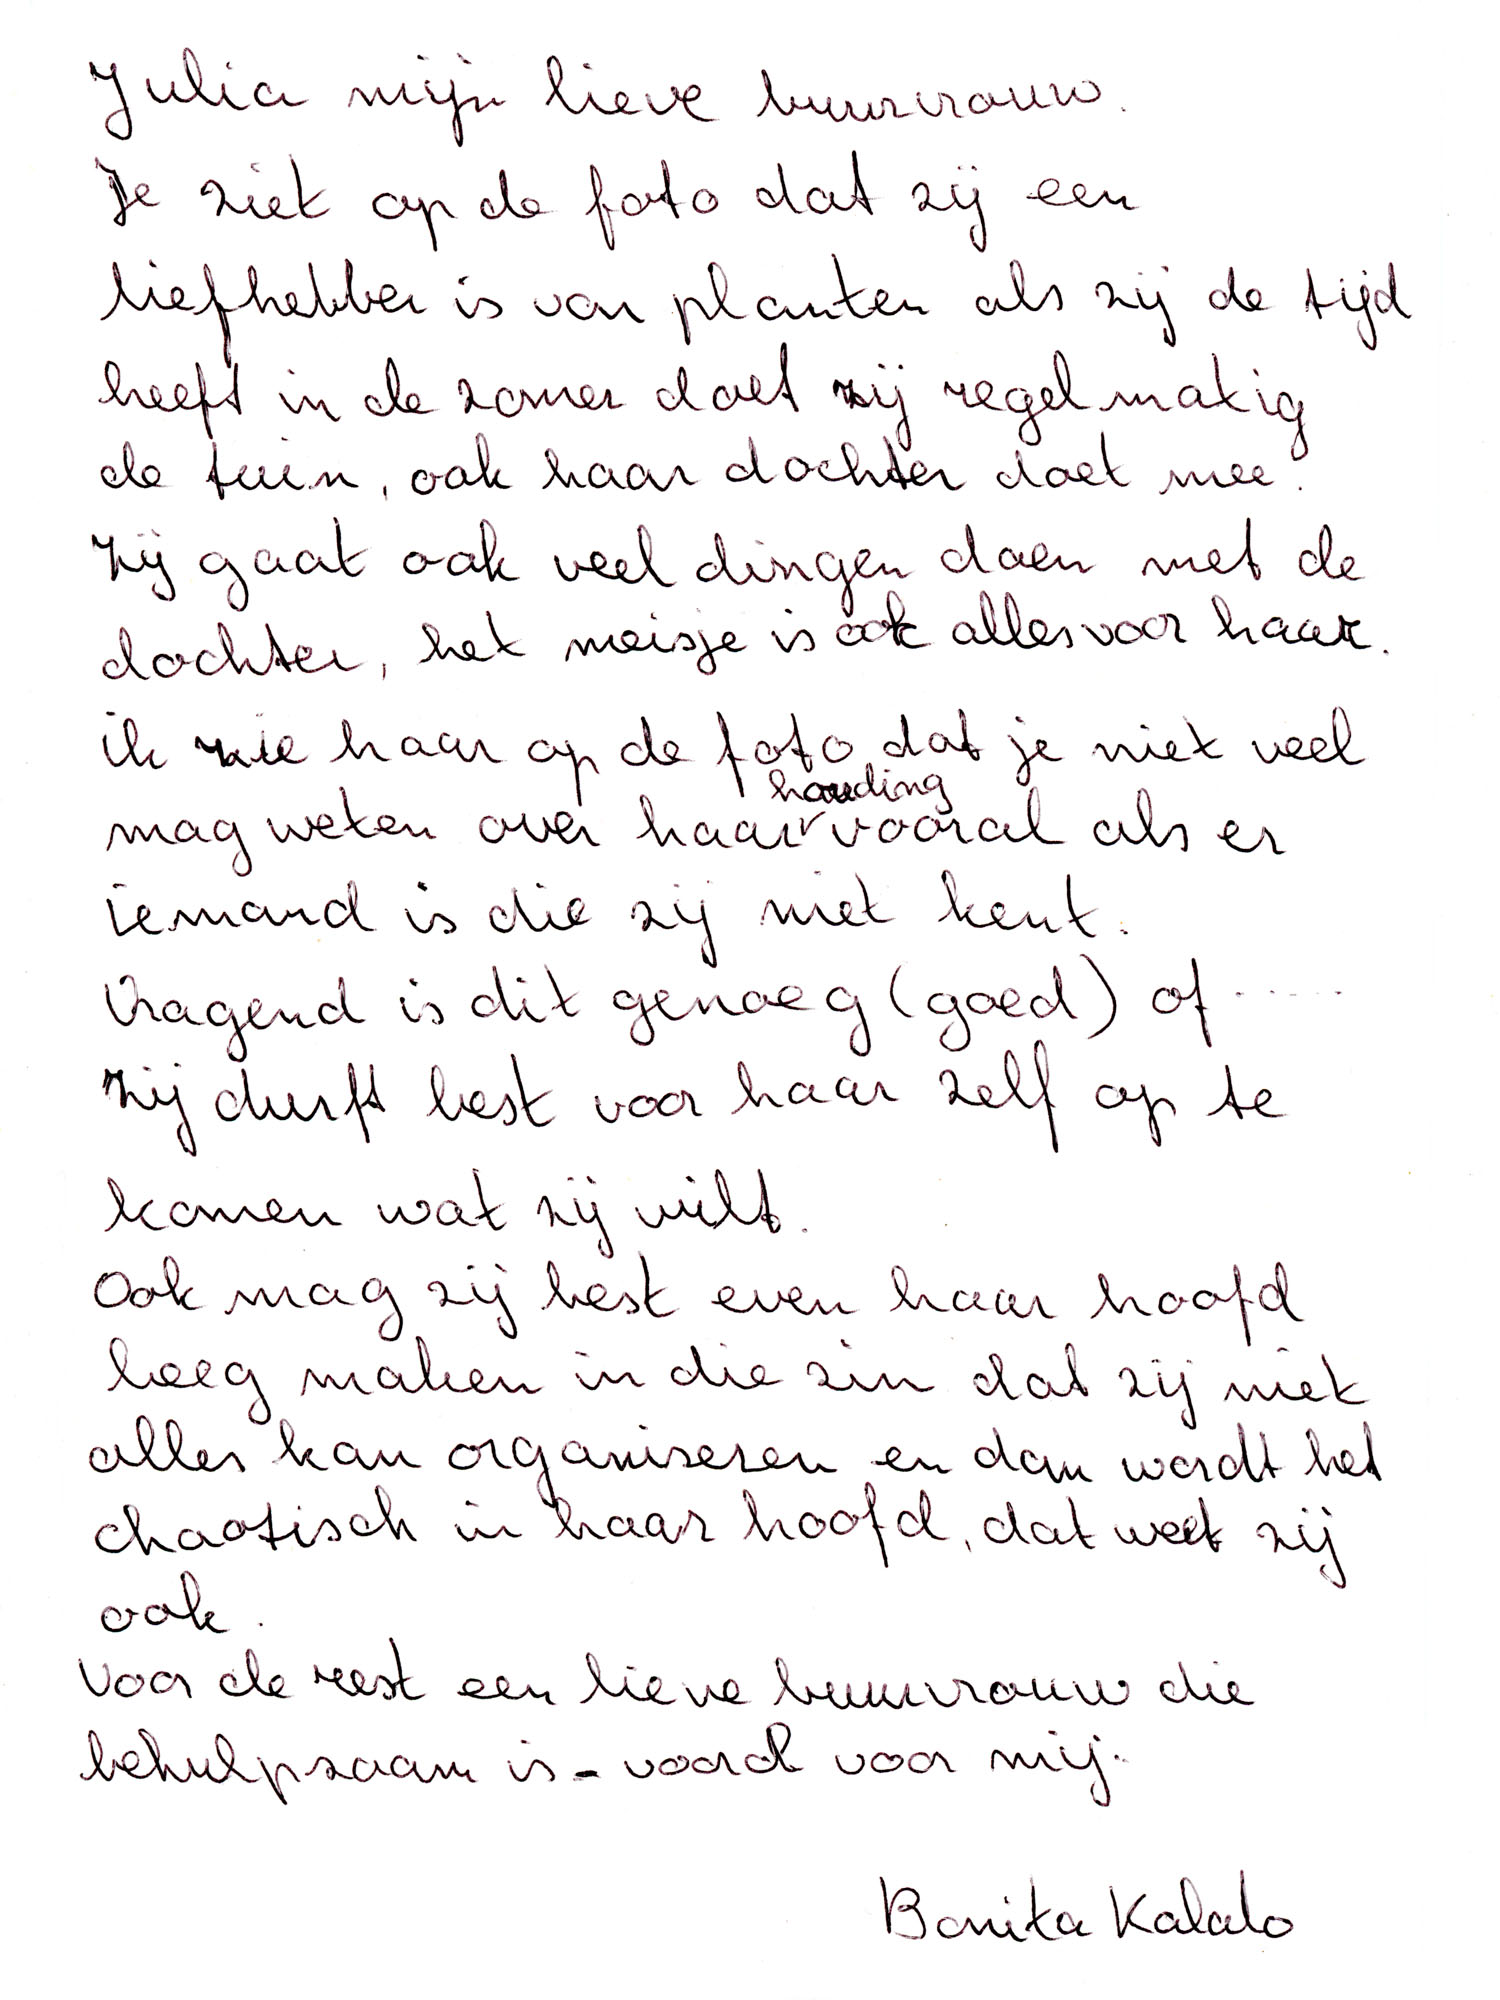 Julia mijn lieve buurvrouw.
Je ziet op de foto dat zij een
liefhebber is van planten als zij de tijd
heeft in de zomer doet zij regelmatig
de tuin, ook haar dochter doet mee.
Zij gaat ook veel dingen doen met de
dochter, het meisje is ook alles voor haar.
ik zie haar op de foto dat je niet veel
mag weten over haar houding vooral als er
iemand is die zij niet kent.
Vragend is dit genoeg (goed) of .....
Zij durft best voor haar zelf op te
komen wat zij wilt.
Ook mag zij best even haar hoofd
leeg maken in die zin dat zij niet
alles kan organiseren en dan wordt het
chaotisch in haar hoofd, dat weet zij
ook.
Voor de rest een lieve buurvrouw die
behulpzaam is - vooral voor mij.
Bonita Kalalo